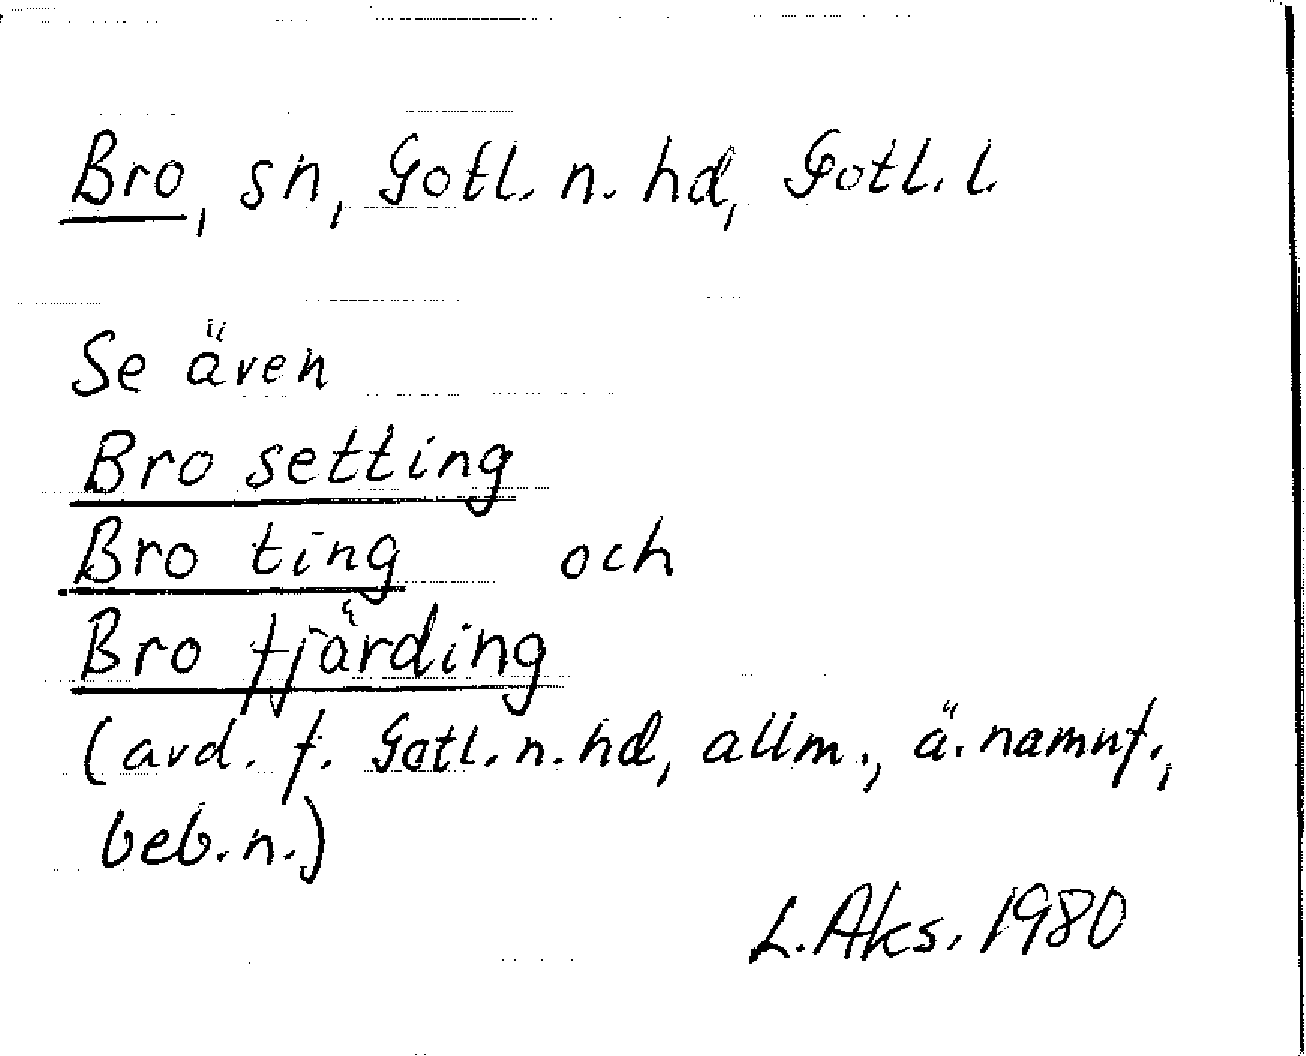 Bro, sn, Gotl. n. hd, Gotl. l.
Se även
Bro setting
Bro ting och
Bro fjärding
(avd. f. Gotl. n. hd, allm., ä. namnf.,
beb. n.)
L. Aks. 1980